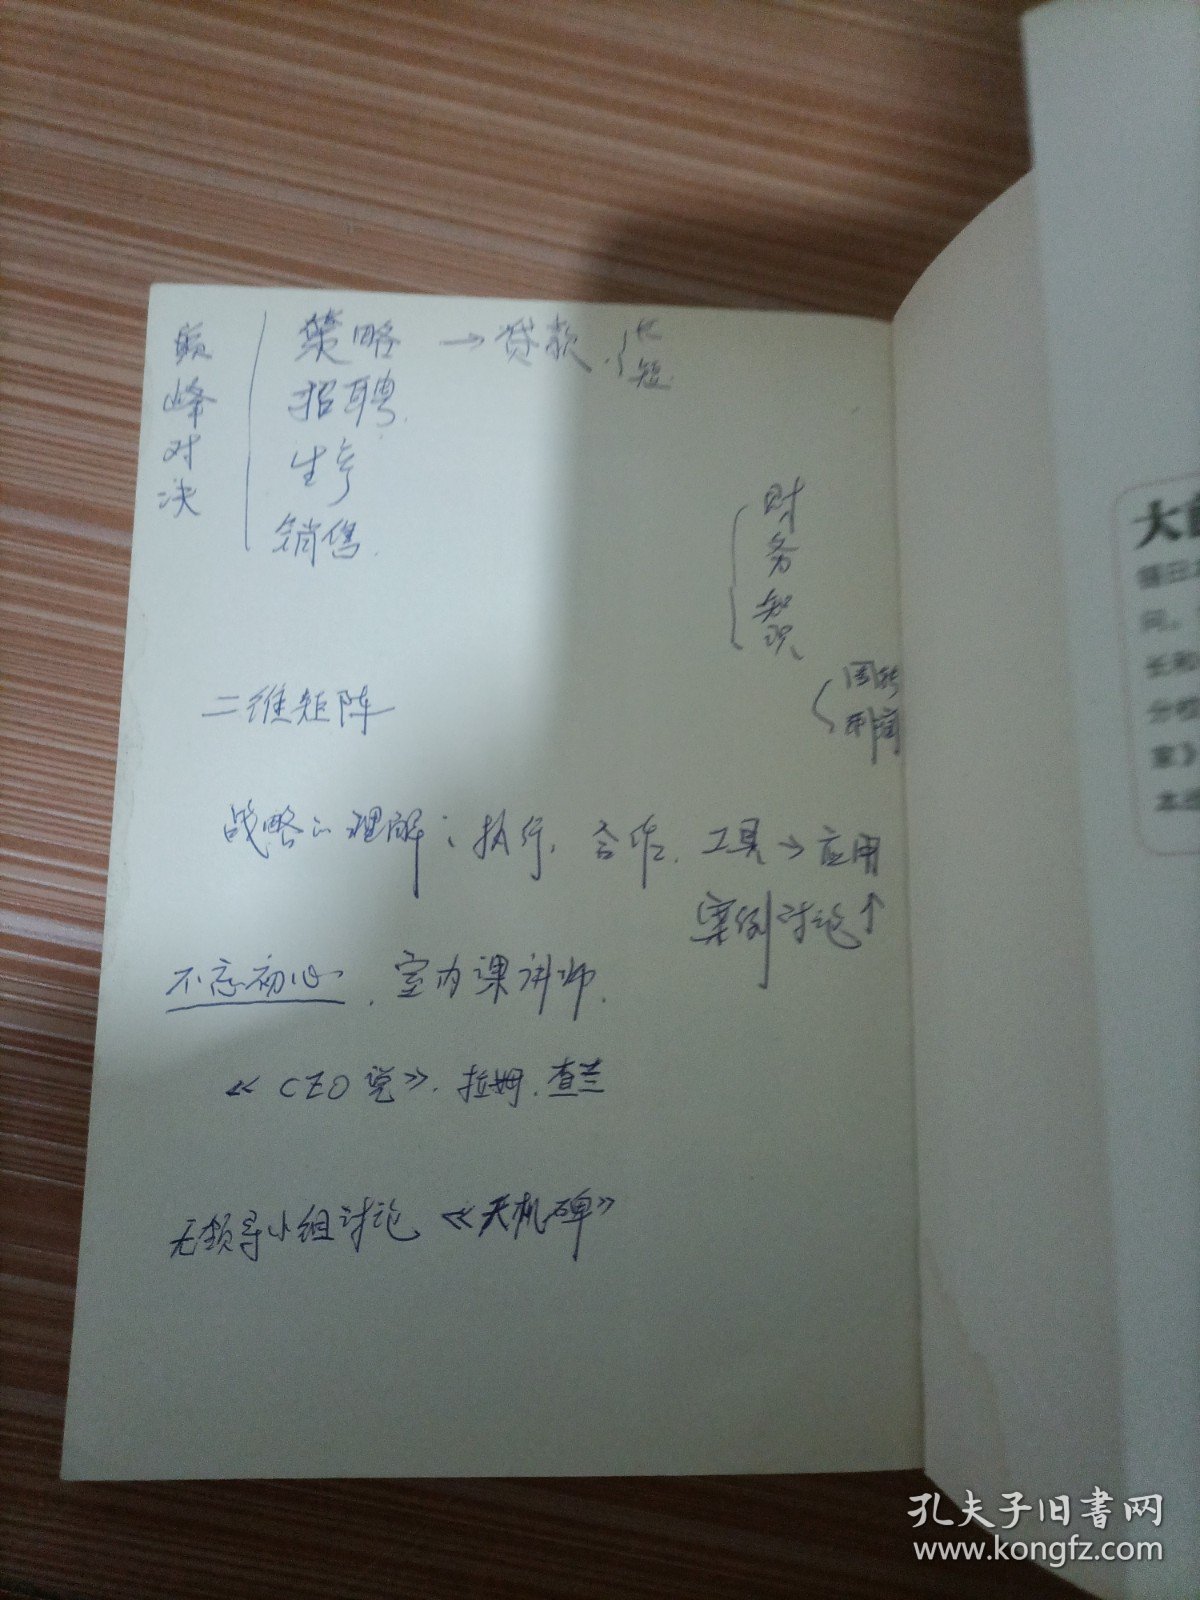 巅峰对决
策略 → 贷款. { 长 短
招聘.
生产
销售.
{ 财务知识
{ 周转 利润
二维矩阵
战略的理解; 执行, 合作. 工具→应用
案例讨论↑
不忘初心. 室内课讲师.
《CEO说》. 拉姆.查兰
无领导小组讨论《天机碑》
大
问。
长和
分校
家》
孔夫子旧书网
www.kongfz.com